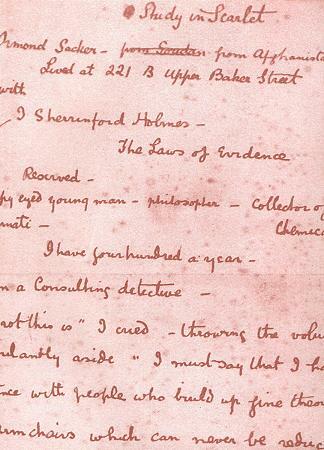 Study in Scarlet
Ormond Sacker - from Soudan from Afghanista
Lived at 221 B Upper Baker Street
with
I Sherrinford Holmes -
The Laws of Evidence
Reserved -
py eyed young man - philosopher - collector of
Chemica
I have four hundred a year -
n a Consulting detective -
rot this is" I cried - throwing the volu
ulantly aside " I must say that I ha
nce with people who build up fine theor
armchairs which can never be reduc